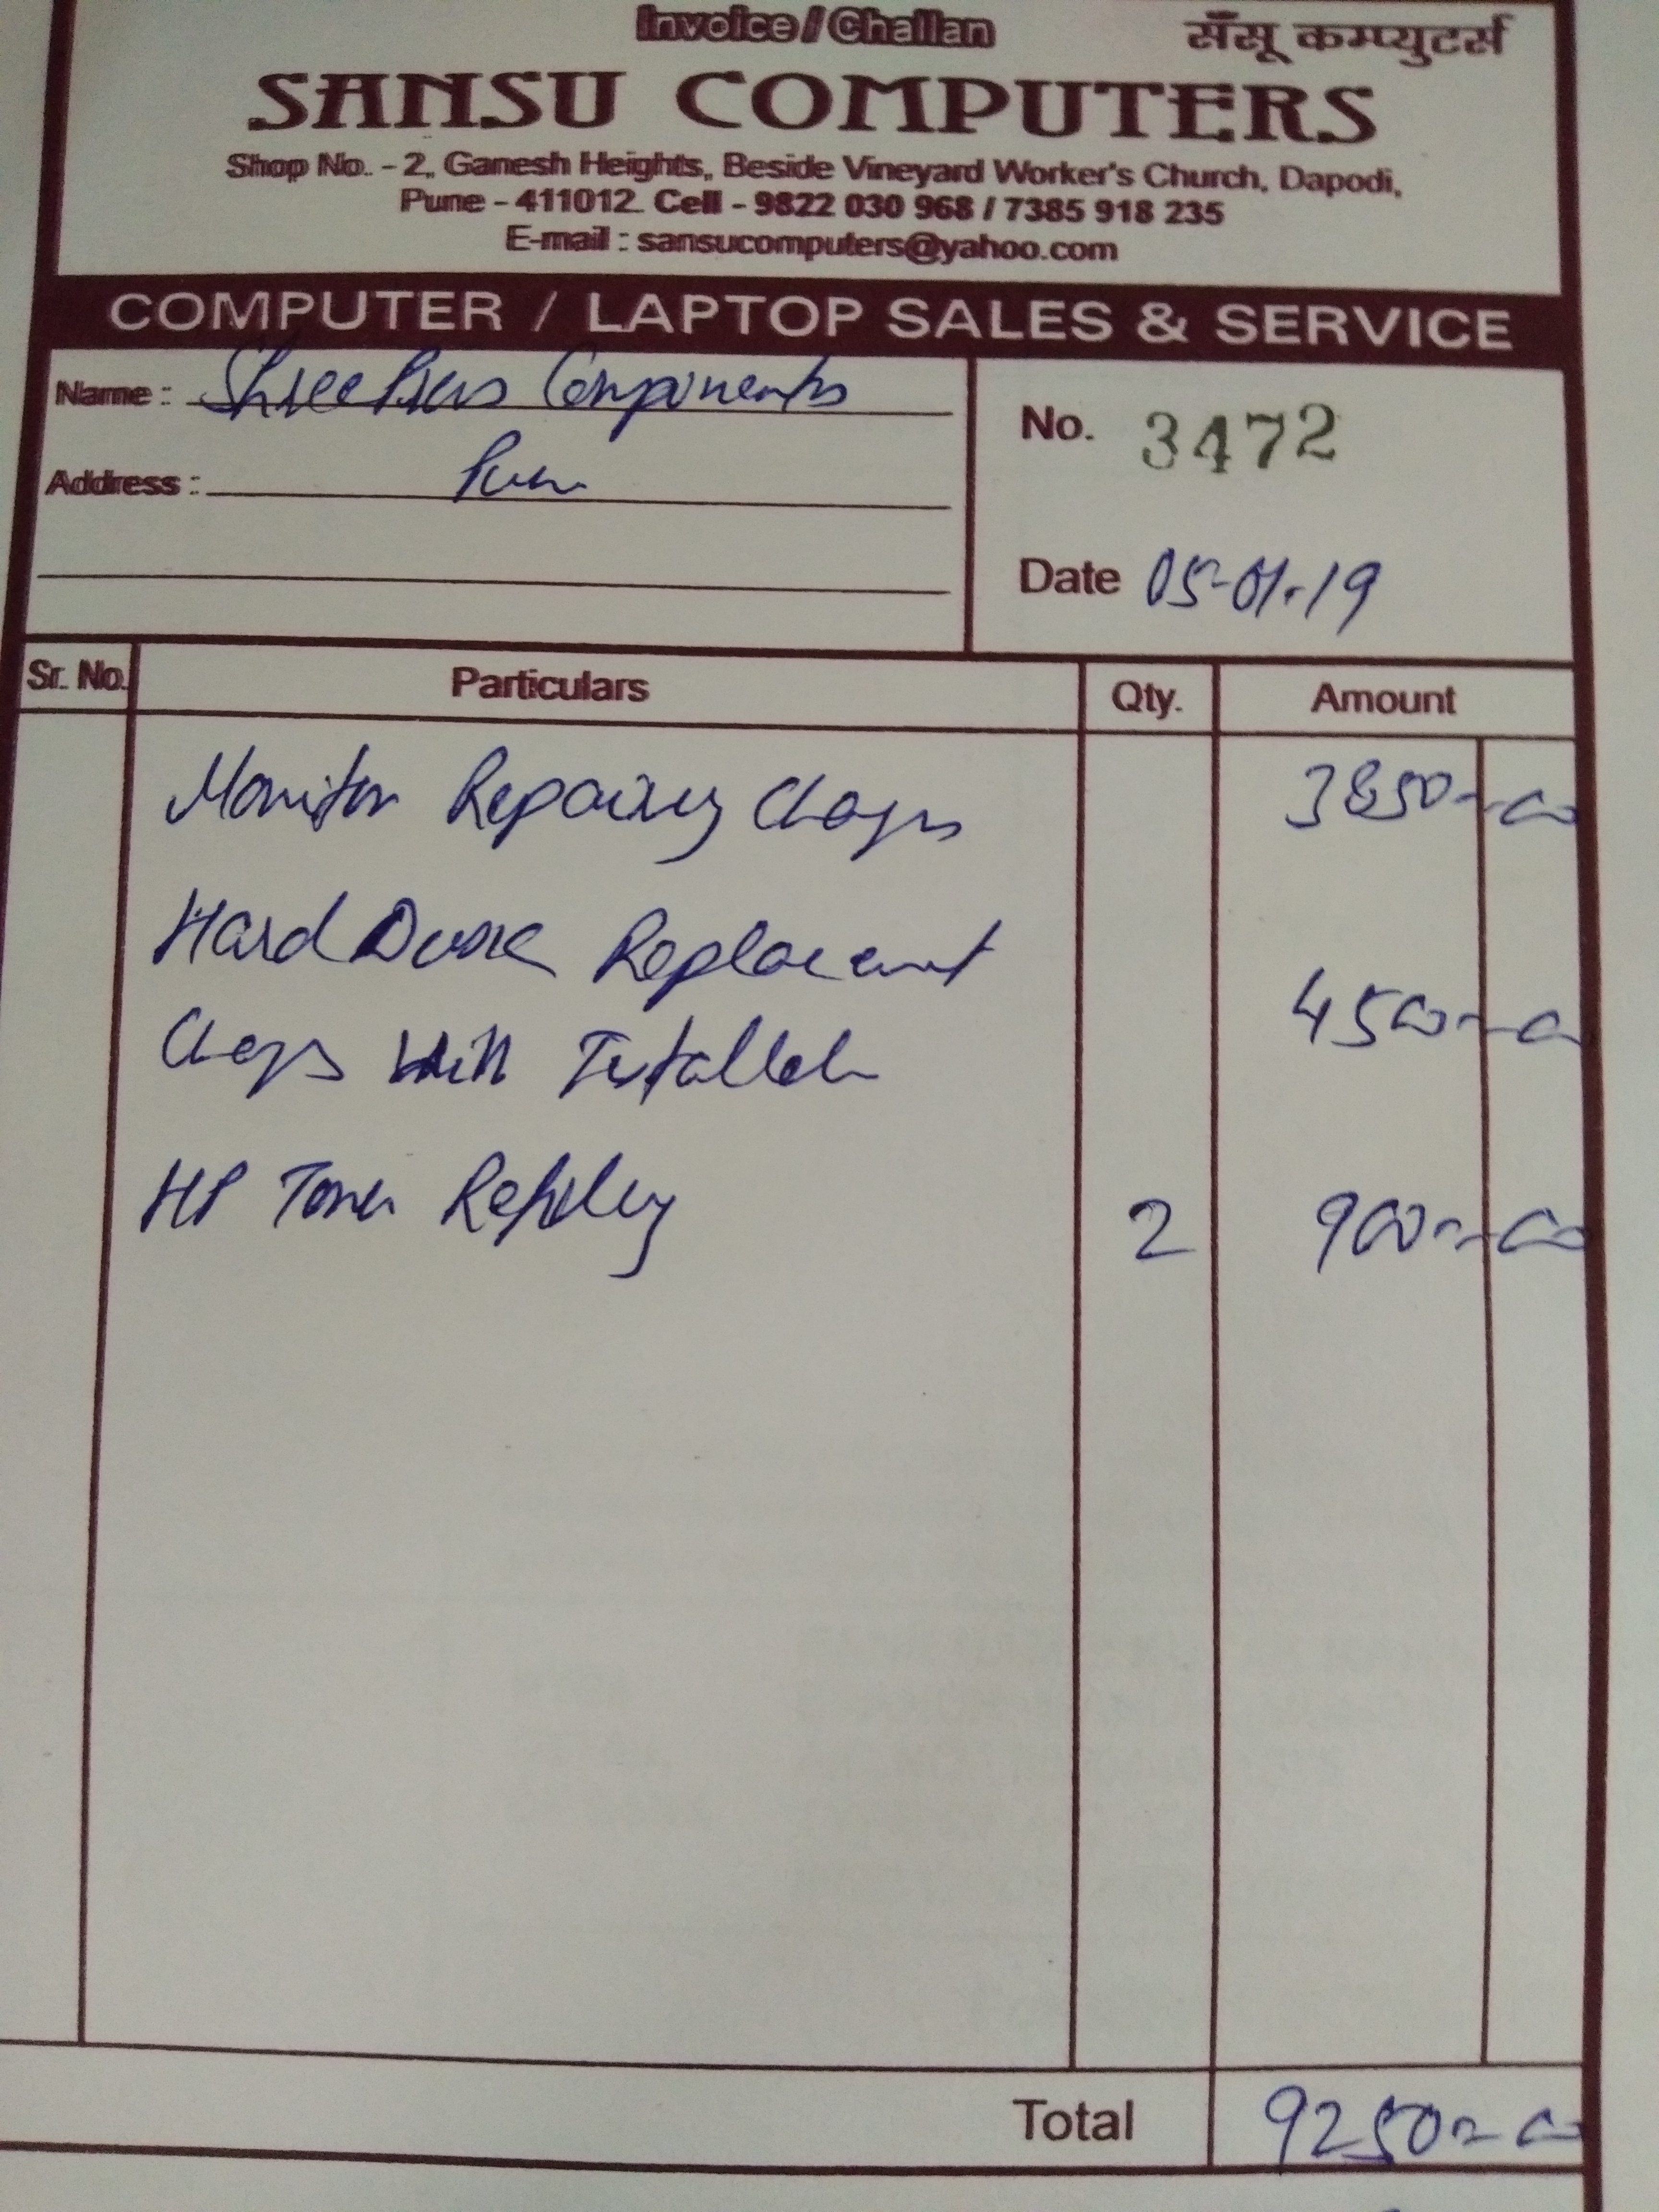 Invoice / Challan
सँसू कम्प्युटर्स
SANSU COMPUTERS
Shop No. - 2, Ganesh Heights, Beside Vineyard Worker's Church, Dapodi,
Pune - 411012. Cell - 9822 030 968 / 7385 918 235
E-mail : sansucomputers@yahoo.com
COMPUTER / LAPTOP SALES & SERVICE
Name : Components
No. 3472
Address :
Date 05-01-19
Sr. No. Particulars Qty. Amount
Monitor Repairing 3850-00
Hard Replacement
4500-00
HP Toner 2 900-00
Total 9250-00